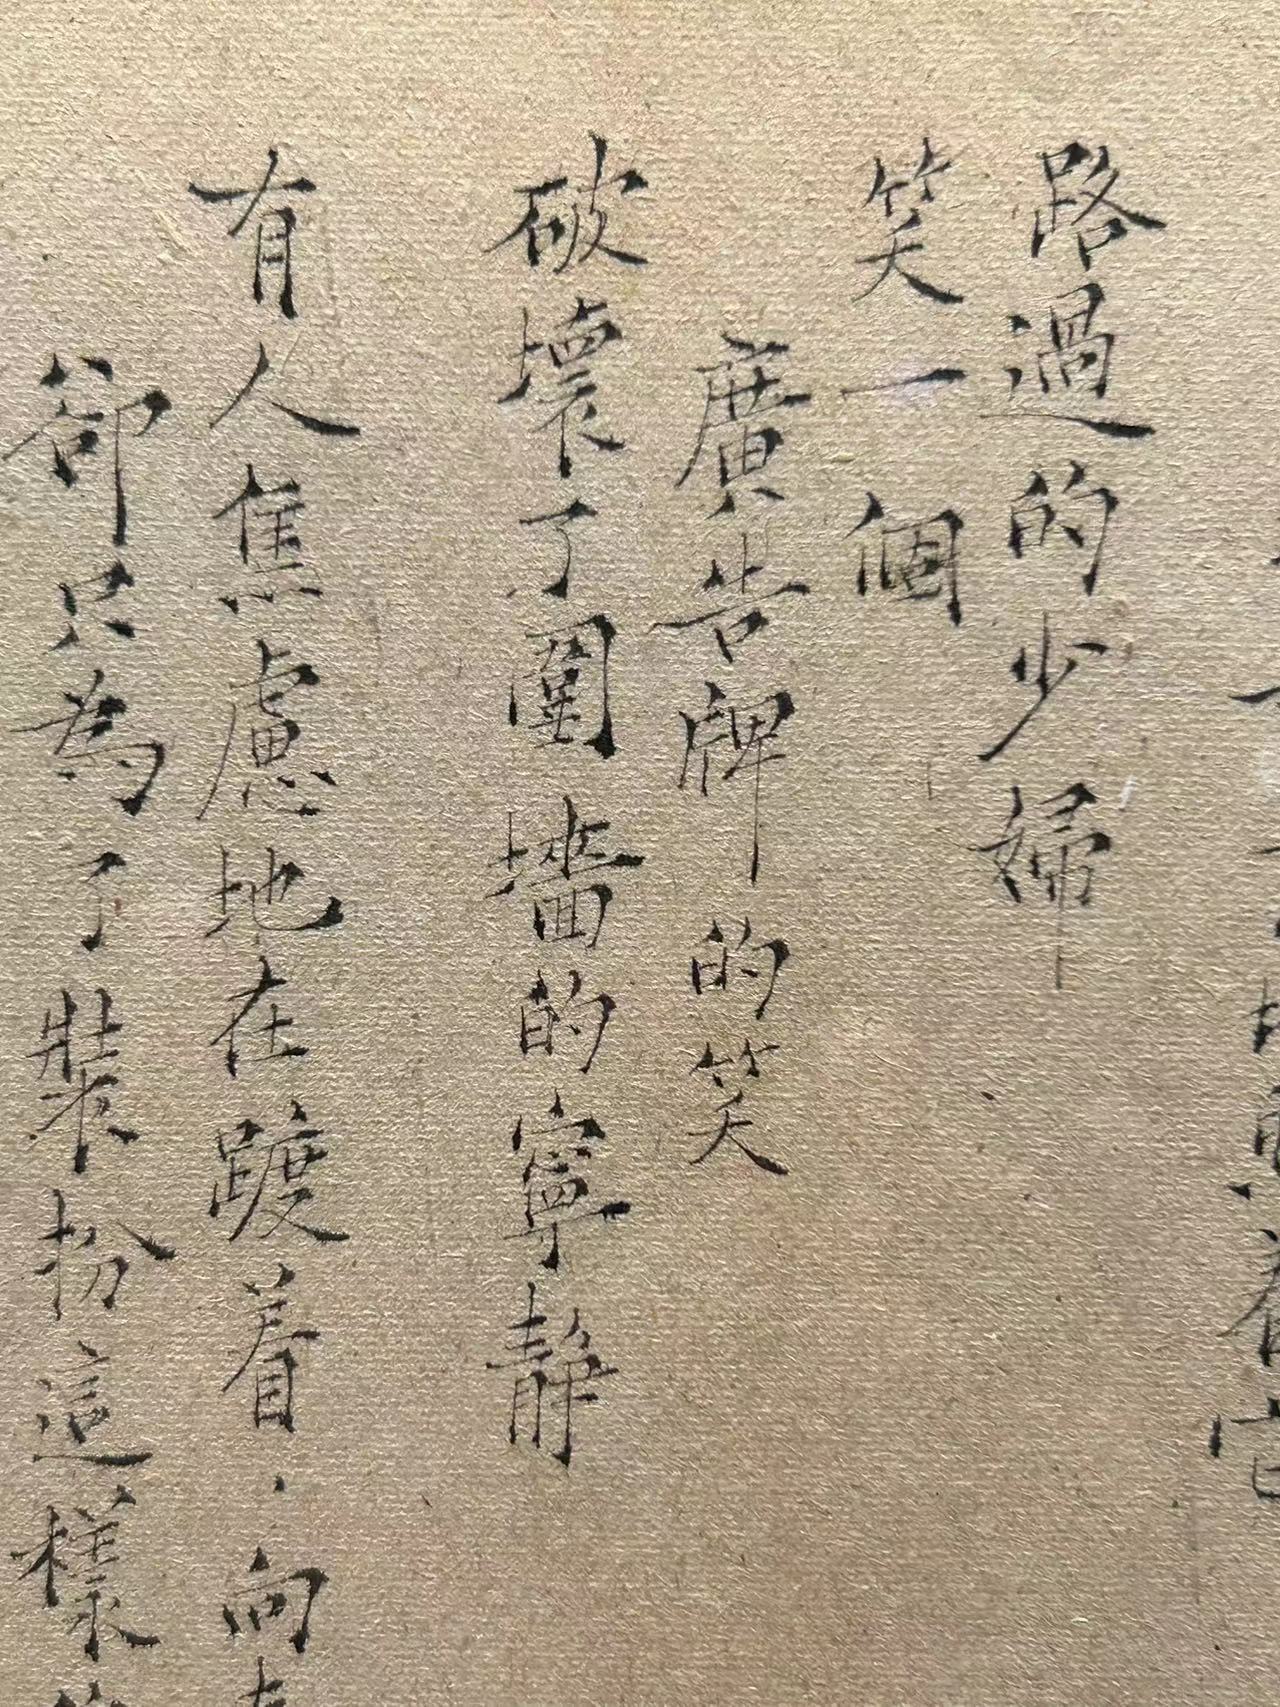 路過的少婦
笑一個
廣告牌的笑
破壞了圍墻的寧靜
有人焦慮地在踱着,向
卻只為了裝扮這樣